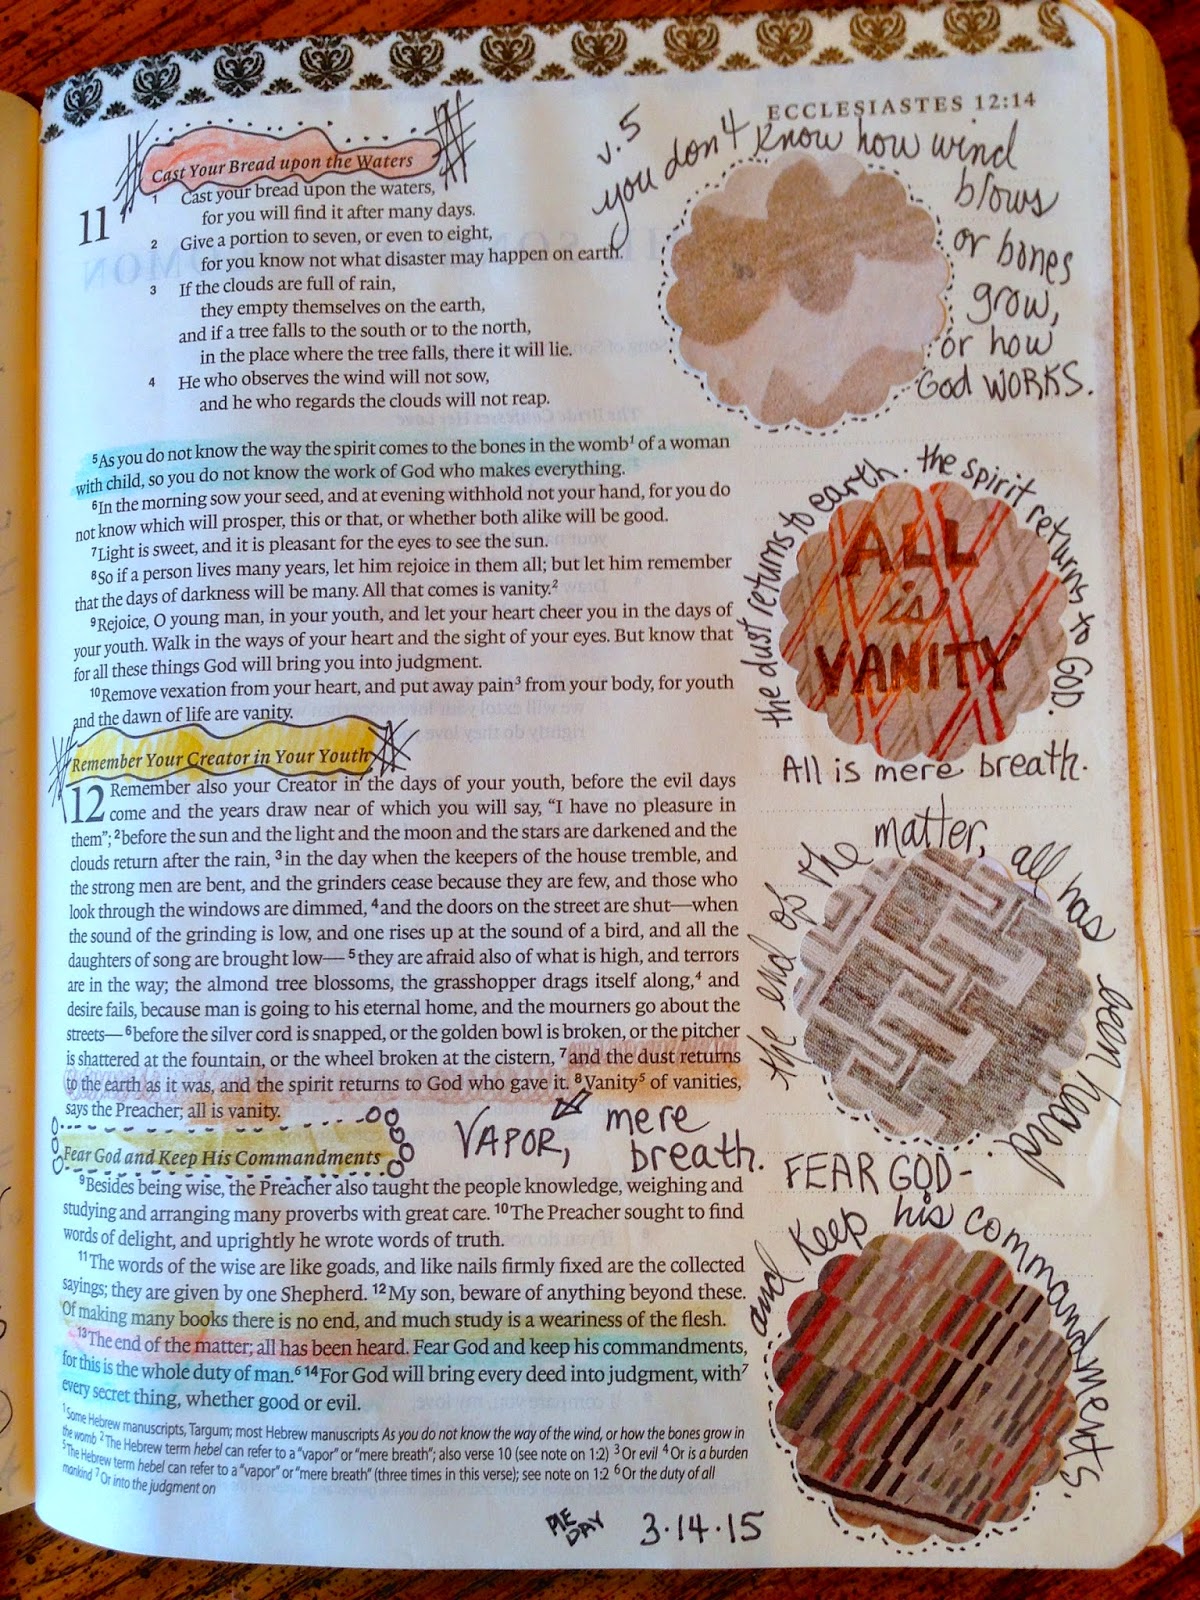 ECCLESIASTES 12:14
Cast Your Bread upon the Waters
11
1 Cast your bread upon the waters,
for you will find it after many days.
2 Give a portion to seven, or even to eight,
for you know not what disaster may happen on earth.
3 If the clouds are full of rain,
they empty themselves on the earth,
and if a tree falls to the south or to the north,
in the place where the tree falls, there it will lie.
4 He who observes the wind will not sow,
and he who regards the clouds will not reap.
5 As you do not know the way the spirit comes to the bones in the womb1 of a woman
with child, so you do not know the work of God who makes everything.
6 In the morning sow your seed, and at evening withhold not your hand, for you do
not know which will prosper, this or that, or whether both alike will be good.
7 Light is sweet, and it is pleasant for the eyes to see the sun.
8 So if a person lives many years, let him rejoice in them all; but let him remember
that the days of darkness will be many. All that comes is vanity.2
9 Rejoice, O young man, in your youth, and let your heart cheer you in the days of
your youth. Walk in the ways of your heart and the sight of your eyes. But know that
for all these things God will bring you into judgment.
10 Remove vexation from your heart, and put away pain3 from your body, for youth
and the dawn of life are vanity.
Remember Your Creator in Your Youth
12 Remember also your Creator in the days of your youth, before the evil days
come and the years draw near of which you will say, “I have no pleasure in
them”; 2 before the sun and the light and the moon and the stars are darkened and the
clouds return after the rain, 3 in the day when the keepers of the house tremble, and
the strong men are bent, and the grinders cease because they are few, and those who
look through the windows are dimmed, 4 and the doors on the street are shut—when
the sound of the grinding is low, and one rises up at the sound of a bird, and all the
daughters of song are brought low— 5 they are afraid also of what is high, and terrors
are in the way; the almond tree blossoms, the grasshopper drags itself along,4 and
desire fails, because man is going to his eternal home, and the mourners go about the
streets— 6 before the silver cord is snapped, or the golden bowl is broken, or the pitcher
is shattered at the fountain, or the wheel broken at the cistern, 7 and the dust returns
to the earth as it was, and the spirit returns to God who gave it. 8 Vanity5 of vanities,
says the Preacher; all is vanity.
VAPOR, mere
breath.
Fear God and Keep His Commandments
9 Besides being wise, the Preacher also taught the people knowledge, weighing and
studying and arranging many proverbs with great care. 10 The Preacher sought to find
words of delight, and uprightly he wrote words of truth.
11 The words of the wise are like goads, and like nails firmly fixed are the collected
sayings; they are given by one Shepherd. 12 My son, beware of anything beyond these.
Of making many books there is no end, and much study is a weariness of the flesh.
13 The end of the matter; all has been heard. Fear God and keep his commandments,
for this is the whole duty of man.6 14 For God will bring every deed into judgment, with7
every secret thing, whether good or evil.
1 Some Hebrew manuscripts, Targum; most Hebrew manuscripts As you do not know the way of the wind, or how the bones grow in
the womb 2 The Hebrew term hebel can refer to a “vapor” or “mere breath”; also verse 10 (see note on 1:2) 3 Or evil 4 Or is a burden
5 The Hebrew term hebel can refer to a “vapor” or “mere breath” (three times in this verse); see note on 1:2 6 Or the duty of all
mankind 7 Or into the judgment on
PIE
DAY
3·14·15
v.5
you don't know how wind
blows
or bones
grow,
or how
God WORKS.
the dust returns to earth. the spirit returns to GOD.
ALL
is
VANITY
All is mere breath.
the end of the matter, all has been heard
FEAR GOD -
and keep his commandments.